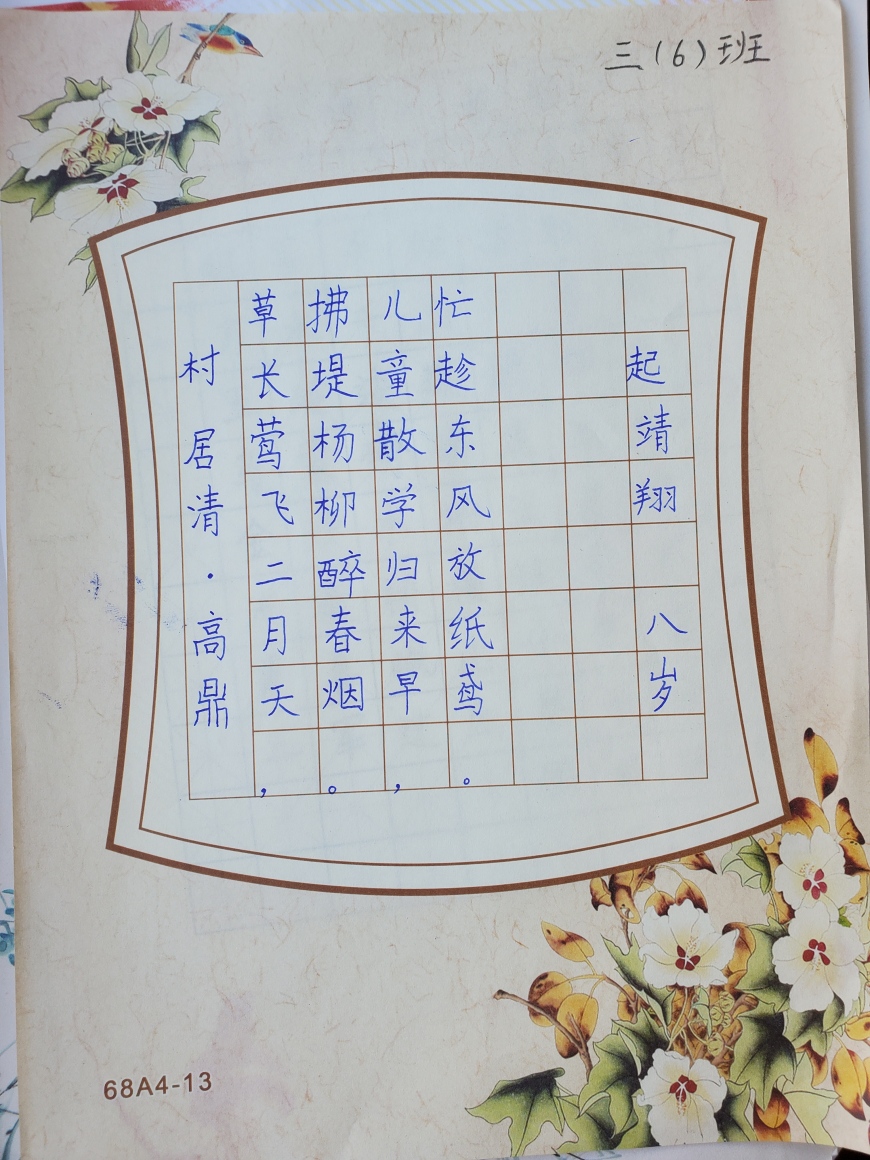 三(6)班
村居清·高鼎
草长莺飞二月天，
拂堤杨柳醉春烟。
儿童散学归来早，
忙趁东风放纸鸢。
起靖翔 八岁
68A4-13